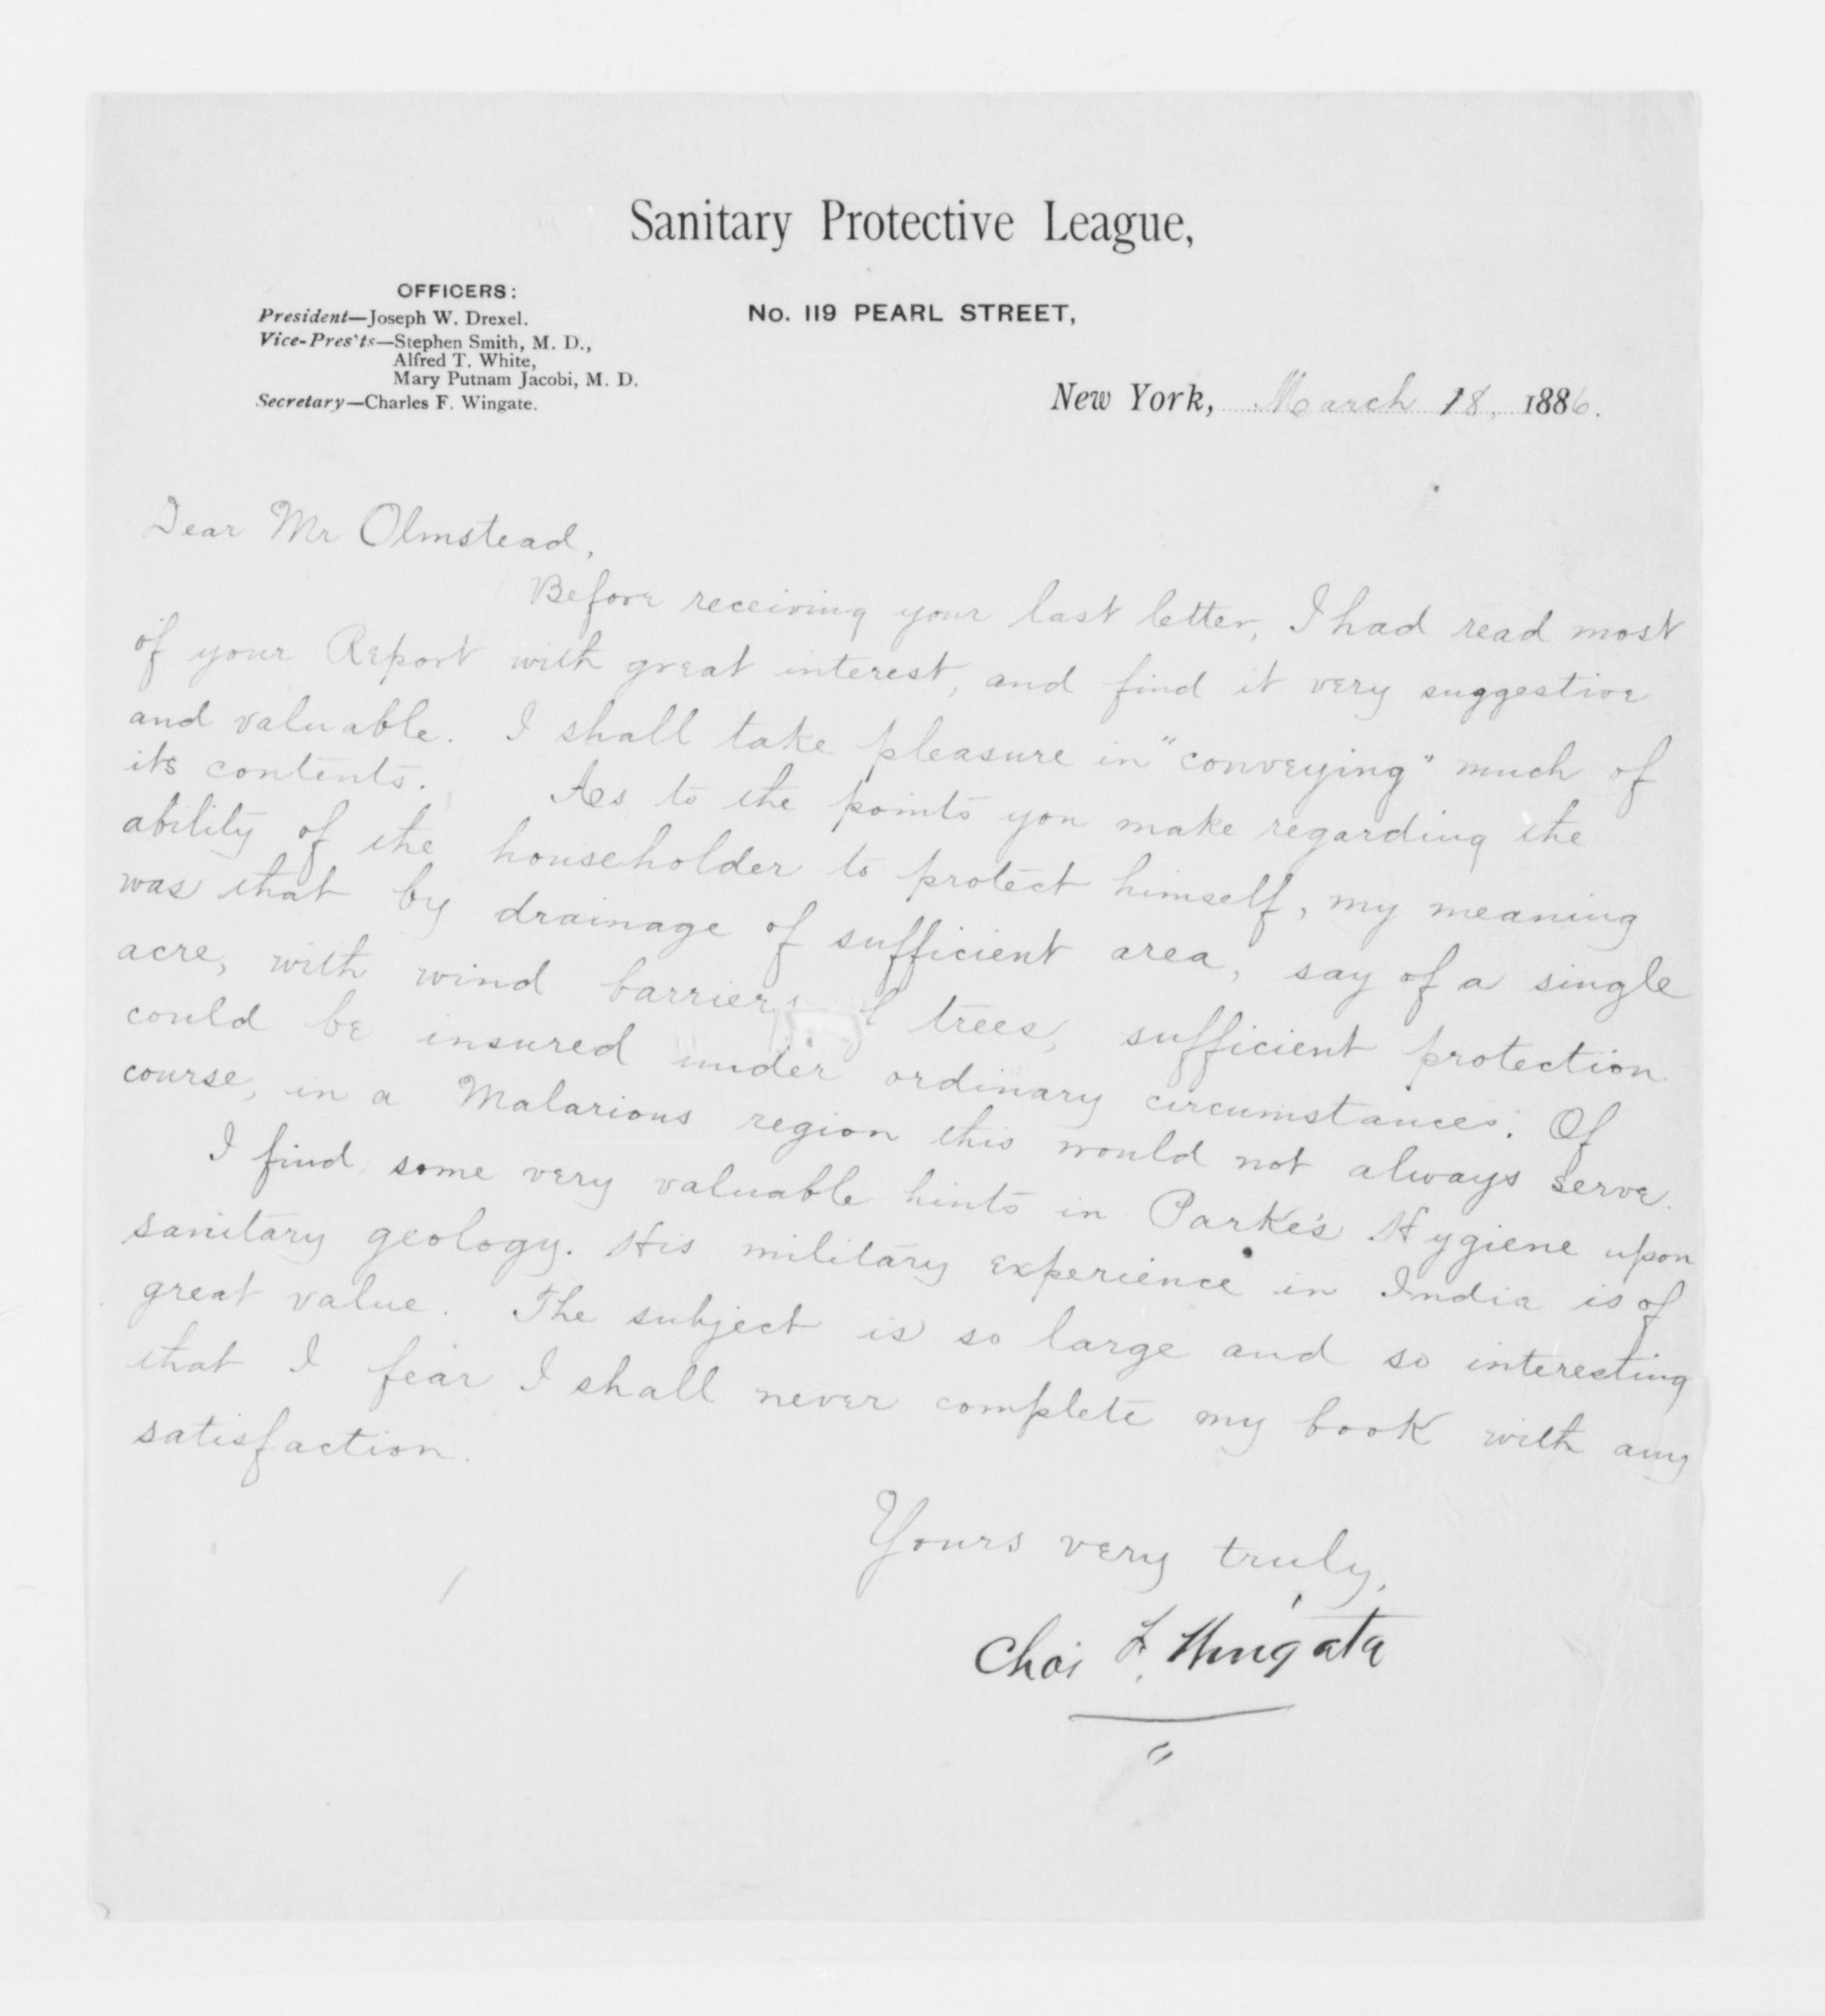 Sanitary Protective League,
OFFICERS:
President—Joseph W. Drexel.
Vice-Pres'ts—Stephen Smith, M. D.,
Alfred T. White,
Mary Putnam Jacobi, M. D.
Secretary—Charles F. Wingate.
No. 119 PEARL STREET,
New York, March 18, 1886.
Dear Mr Olmstead,
Before receiving your last letter, I had read most
of your Report with great interest, and find it very suggestive
and valuable. I shall take pleasure in "conveying" much of
its contents. As to the points you make regarding the
ability of the householder to protect himself, my meaning
was that by drainage of sufficient area, say of a single
acre, with wind barriers trees, sufficient protection
could be insured under ordinary circumstances. Of
course, in a Malarious region this would not always serve.
I find some very valuable hints in Parke's Hygiene upon
sanitary geology. His military experience in India is of
great value. The subject is so large and so interesting
that I fear I shall never complete my book with any
satisfaction.
Yours very truly,
Chas F. Wingate